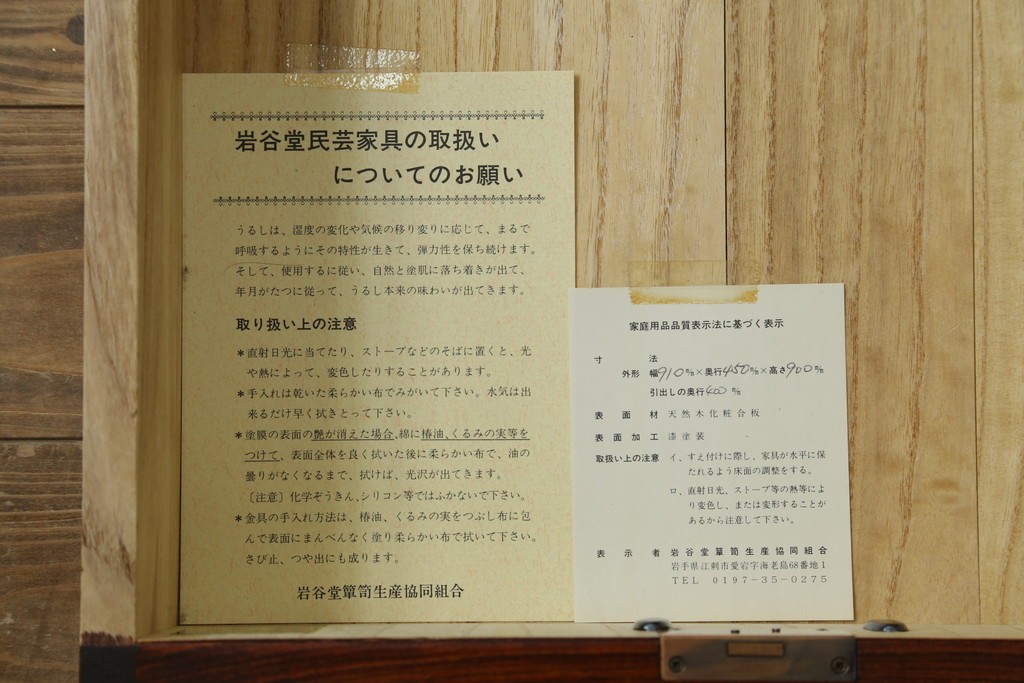 岩谷堂民芸家具の取扱い
についてのお願い
うるしは、湿度の変化や気候の移り変りに応じて、まるで
呼吸するようにその特性が生きて、弾力性を保ち続けます。
そして、使用するに従い、自然と塗肌に落ち着きが出て、
年月がたつに従って、うるし本来の味わいが出てきます。
取り扱い上の注意
＊直射日光に当てたり、ストーブなどのそばに置くと、光
や熱によって、変色したりすることがあります。
＊手入れは乾いた柔らかい布でみがいて下さい。水気は出
来るだけ早く拭きとって下さい。
＊塗膜の表面の艶が消えた場合、綿に椿油、くるみの実等を
つけて、表面全体を良く拭いた後に柔らかい布で、油の
曇りがなくなるまで、拭けば、光沢が出てきます。
〔注意〕化学ぞうきん、シリコン等ではふかないで下さい。
＊金具の手入れ方法は、椿油、くるみの実をつぶし布に包
んで表面にまんべんなく塗り柔らかい布で拭いて下さい。
さび止、つや出にも成ります。
岩谷堂簞笥生産協同組合
家庭用品品質表示法に基づく表示
寸法
外形 幅910㎜×奥行450㎜×高さ900㎜
引出しの奥行400㎜
表面材 天然木化粧合板
表面加工 漆塗装
取扱い上の注意 イ、すえ付けに際し、家具が水平に保
たれるよう床面の調整をする。
ロ、直射日光、ストーブ等の熱等によ
り変色し、または変形することが
あるから注意して下さい。
表示者 岩谷堂簞笥生産協同組合
岩手県江刺市愛宕字海老島68番地1
TEL 0197-35-0275